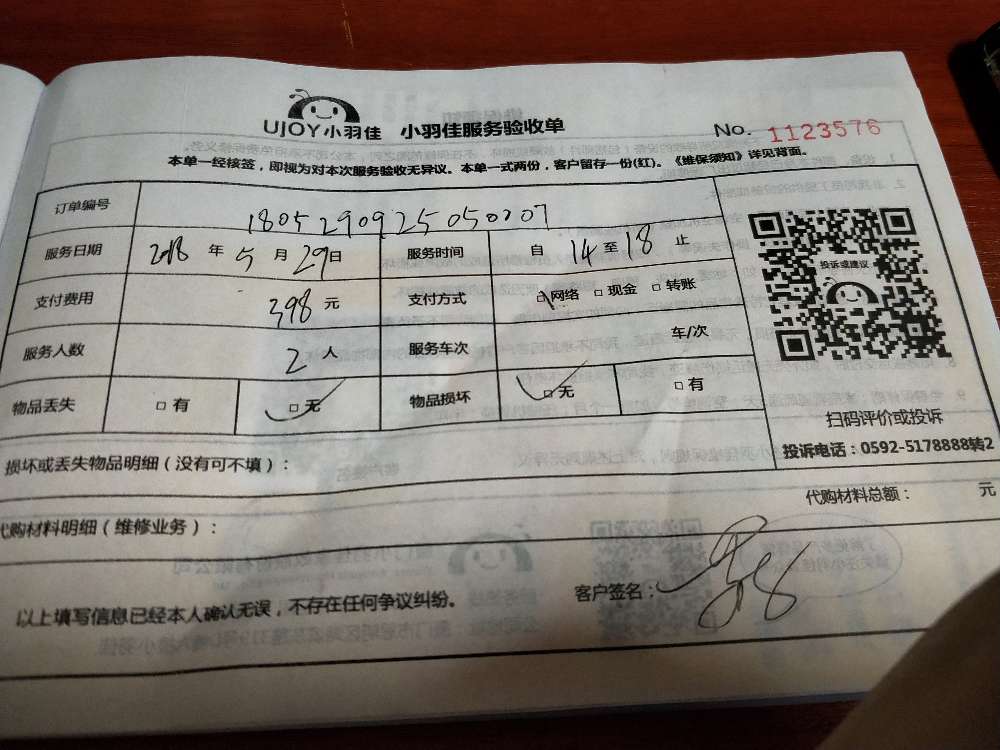 UJOY小羽佳 小羽佳服务验收单 No. 1123576
本单一经核签，即视为对本次服务验收无异议。本单一式两份，客户留存一份(红)。《维保须知》详见背面。
订单编号 1805290925050007
服务日期 2018 年 5 月 29 日 服务时间 自 14 至 18 止
投诉或建议
支付费用 398 元 支付方式 □网络 □现金 □转账
服务人数 2 人 服务车次 车/次
物品丢失 □有 □无 物品损坏 □无 □有
扫码评价或投诉
投诉电话：0592-5178888转2
损坏或丢失物品明细（没有可不填）：
代购材料总额： 元
代购材料明细（维修业务）：
客户签名：
以上填写信息已经本人确认无误，不存在任何争议纠纷。